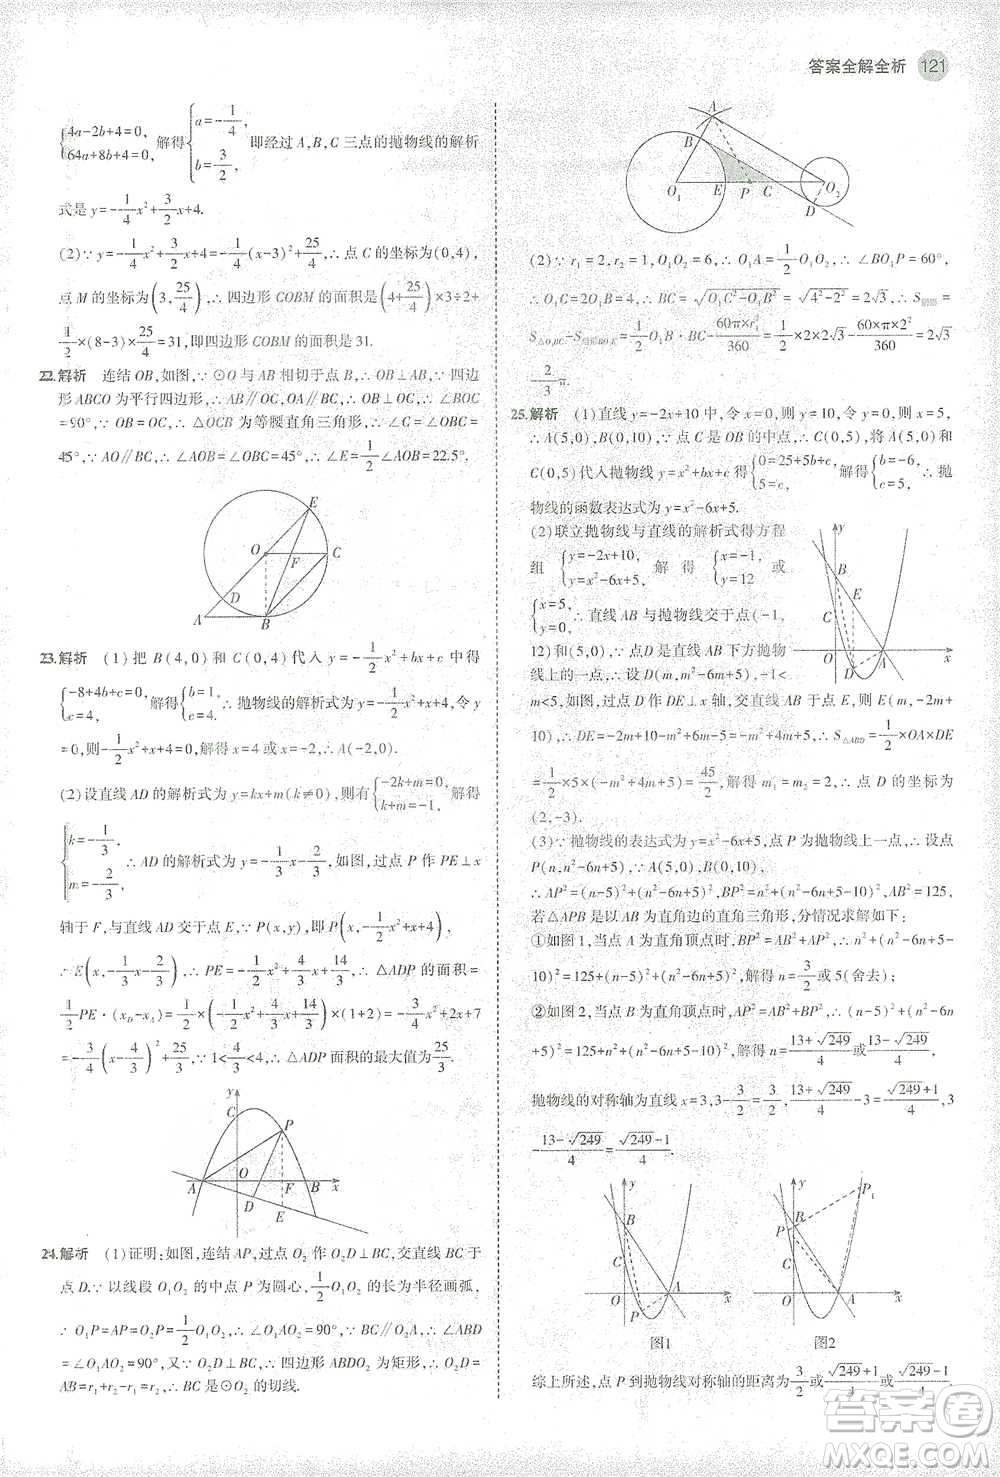 答案全解全析 121
{4a-2b+4=0, 64a+8b+4=0, 解得{a=-1/4, b=3/2, 即经过 A,B,C 三点的抛物线的解析
式是 y=-1/4x²+3/2x+4.
(2)∵ y=-1/4x²+3/2x+4=-1/4(x-3)²+25/4,∴ 点 C 的坐标为(0,4),
点 M 的坐标为(3,25/4),∴ 四边形 COBM 的面积是(4+25/4)×3÷2+
1/2×(8-3)×25/4=31,即四边形 COBM 的面积是 31.
22.解析 连结 OB,如图,∵ ⊙O 与 AB 相切于点 B,∴ OB⊥AB,∵ 四边
形 ABCO 为平行四边形,∴ AB∥OC,OA∥BC,∴ OB⊥OC,∴ ∠BOC
=90°,∵ OB=OC,∴ △OCB 为等腰直角三角形,∴ ∠C=∠OBC=
45°,∵ AO∥BC,∴ ∠AOB=∠OBC=45°,∴ ∠E=1/2∠AOB=22.5°.
E
O
F
C
D
A
B
23.解析 (1)把 B(4,0)和 C(0,4)代入 y=-1/2x²+bx+c 中得
{-8+4b+c=0, c=4, 解得{b=1, c=4, ∴ 抛物线的解析式为 y=-1/2x²+x+4,令 y
=0,则-1/2x²+x+4=0,解得 x=4 或 x=-2,∴ A(-2,0).
(2)设直线 AD 的解析式为 y=kx+m(k≠0),则有{-2k+m=0, k+m=-1, 解得
{k=-1/3, m=-2/3, ∴ AD 的解析式为 y=-1/3x-2/3,如图,过点 P 作 PE⊥x
轴于 F,与直线 AD 交于点 E,∵ P(x,y),即 P(x,-1/2x²+x+4),
∴ E(x,-1/3x-2/3),∴ PE=-1/2x²+4/3x+14/3,∴ △ADP 的面积=
1/2PE·(x_D-x_A)=1/2×(-1/2x²+4/3x+14/3)×(1+2)=-3/4x²+2x+7
=-3/4(x-4/3)²+25/3,∵ 1<4/3<4,∴ △ADP 面积的最大值为25/3.
y
C
P
A
O
F
B
x
D
E
24.解析 (1)证明:如图,连结 AP,过点 O₂ 作 O₂D⊥BC,交直线 BC 于
点 D.∵ 以线段 O₁O₂ 的中点 P 为圆心,1/2O₁O₂ 的长为半径画弧,
∴ O₁P=AP=O₂P=1/2O₁O₂,∴ ∠O₁AO₂=90°,∵ BC∥AO₂,∴ ∠O₁BC=
∠O₁AO₂=90°,又∵ O₂D⊥BC,∴ 四边形 ABDO₂ 为矩形,∴ O₂D=
AB=r₁+r₂-r₁=r₂,∴ BC 是⊙O₂ 的切线.
A
B
O₁
E
P
C
O₂
D
(2)∵ r₁=2,r₂=1,O₁O₂=6,∴ O₁A=1/2O₁O₂,∴ ∠BO₁P=60°,
∴ O₁C=2BO₁=4,∴ BC=√(O₁C²-O₁B²)=√(4²-2²)=2√3,∴ S阴影=
S△O₁BC-S扇形BO₁E=1/2O₁B·BC-60π×r₁²/360=1/2×2×2√3-60×π×2²/360=2√3
-2/3π.
25.解析 (1)直线 y=-2x+10 中,令 x=0,则 y=10,令 y=0,则 x=5,
∴ A(5,0),B(0,10),∵ 点 C 是 OB 的中点,∴ C(0,5),将 A(5,0)和
C(0,5)代入抛物线 y=x²+bx+c 得{0=25+5b+c, 5=c, 解得{b=-6, c=5, ∴ 抛
物线的函数表达式为 y=x²-6x+5.
(2)联立抛物线与直线的解析式得方程
组{y=-2x+10, y=x²-6x+5, 解得{x=-1, y=12 或
{x=5, y=0, ∴ 直线 AB 与抛物线交于点(-1,
12)和(5,0),∵ 点 D 是直线 AB 下方抛物
线上的一点,∴ 设 D(m,m²-6m+5),-1<
m<5,如图,过点 D 作 DE⊥x 轴,交直线 AB 于点 E,则 E(m,-2m+
10),∴ DE=-2m+10-m²+6m-5=-m²+4m+5,∴ S△ABD=1/2×OA×DE
=1/2×5×(-m²+4m+5)=45/2,解得 m₁=m₂=2,∴ 点 D 的坐标为
(2,-3).
y
B
E
C
O
D
A
x
(3)∵ 抛物线的表达式为 y=x²-6x+5,点 P 为抛物线上一点,∴ 设点
P(n,n²-6n+5),∵ A(5,0),B(0,10),
∴ AP²=(n-5)²+(n²-6n+5)²,BP²=n²+(n²-6n+5-10)²,AB²=125,
若△APB 是以 AB 为直角边的直角三角形,分情况求解如下:
①如图 1,当点 A 为直角顶点时,BP²=AB²+AP²,∴ n²+(n²-6n+5-
10)²=125+(n-5)²+(n²-6n+5)²,解得 n=3/2或 5(舍去);
②如图 2,当点 B 为直角顶点时,AP²=AB²+BP²,∴ (n-5)²+(n²-6n
+5)²=125+n²+(n²-6n+5-10)²,解得 n=13+√249/4或13-√249/4,
抛物线的对称轴为直线 x=3,3-3/2=3/2,13+√249/4-3=√249+1/4,3
-13-√249/4=√249-1/4.
y
B
C
O
A
x
P
图1
y
P₁
P
B
C
O
A
x
图2
综上所述,点 P 到抛物线对称轴的距离为3/2或√249+1/4或√249-1/4.
答案圈
MXQE.COM